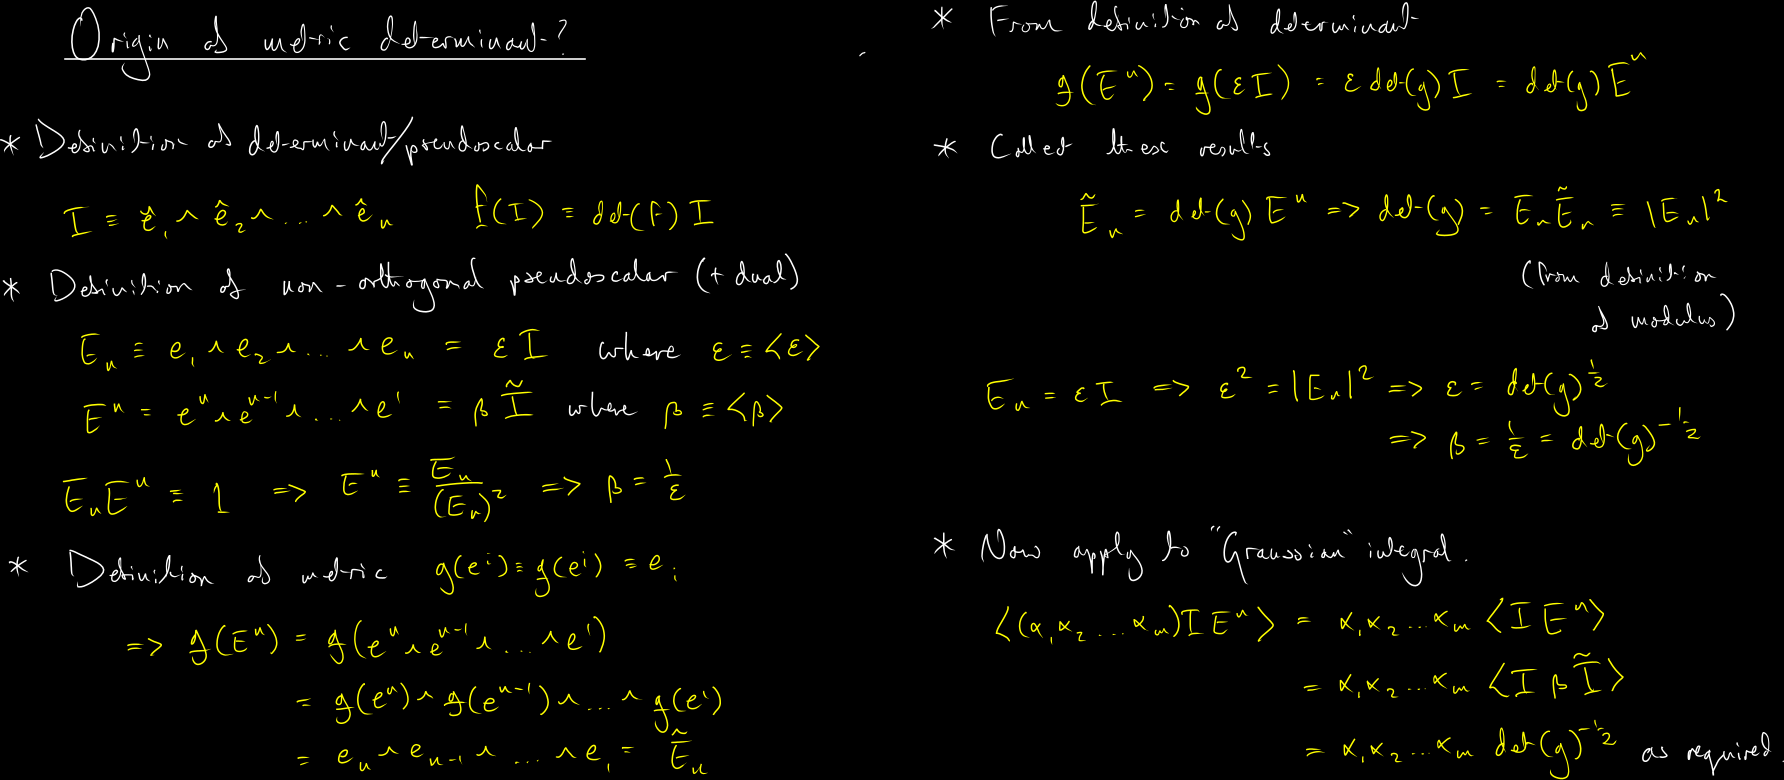 Origin of metric determinant?
* Definition of determinant/pseudoscalar
I ≡ ê₁ ∧ ê₂ ∧ ... ∧ êₙ f(I) ≡ det(f) I
* Definition of non-orthogonal pseudoscalar (+ dual)
Eₙ ≡ e₁ ∧ e₂ ∧ ... ∧ eₙ = ε I where ε ≡ <ε>
Eⁿ = eⁿ ∧ eⁿ⁻¹ ∧ ... ∧ e¹ = β Ĩ where β ≡ <β>
EₙEⁿ ≡ 1 => Eⁿ ≡ Eₙ/(Eₙ)² => β = 1/ε
* Definition of metric g(eⁱ) ≡ g(eⁱ) = eᵢ
=> g(Eⁿ) = g(eⁿ ∧ eⁿ⁻¹ ∧ ... ∧ e¹)
= g(eⁿ) ∧ g(eⁿ⁻¹) ∧ ... ∧ g(e¹)
= eₙ ∧ eₙ₋₁ ∧ ... ∧ e₁ = Ẽₙ
* From definition of determinant
g(Eⁿ) = g(εI) = ε det(g) I = det(g) Eⁿ
* Collect these results
Ẽₙ = det(g) Eⁿ => det(g) = EₙẼₙ ≡ |Eₙ|²
(from definition
of modulus)
Eₙ = εI => ε² = |Eₙ|² => ε = det(g)^½
=> β = 1/ε = det(g)^-½
* Now apply to "Graussian" integral.
<(α₁α₂...αₘ)I Eⁿ> = α₁α₂...αₘ <I Eⁿ>
= α₁α₂...αₘ <I β Ĩ>
= α₁α₂...αₘ det(g)^-½ as required